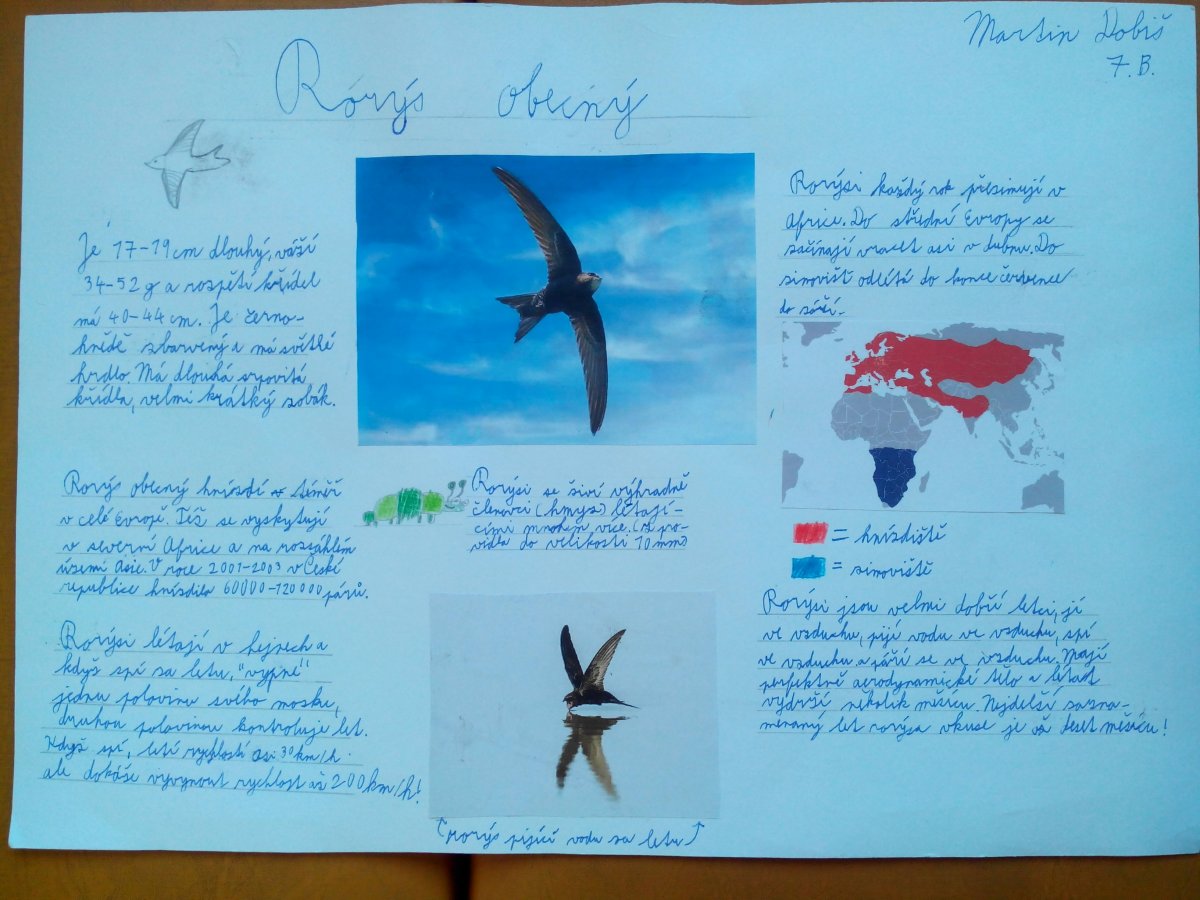 Martin Dobiš
7. B.
Rorýs obecný
Je 17-19 cm dlouhý, váží
34-52 g a rozpětí křídel
má 40-44 cm. Je černo-
hnědě zbarvený a má světlé
hrdlo. Má dlouhá srpovitá
křídla, velmi krátký zobák.
Rorýs obecný hnízdí v téměř
v celé Evropě. Též se vyskytují
v severní Africe a na rozsáhlém
území Asie. V roce 2001-2003 v České
republice hnízdilo 60000-120000 párů.
Rorýsi létají v hejnech a
když spí za letu, "vypné"
jednu polovinu svého mozku,
druhou polovinou kontroluje let.
Když spí, letí rychlostí asi 30 km/h
ale dokáže vyvynout rychlost až 200 km/h!
Rorýsi se živí výhradně
členovci (hmyz) létají-
cími mnohem více. (z pra-
vidla do velikosti 10 mm)
(rorýs pijící vodu za letu)
Rorýsi každý rok přezimují v
Africe. Do střední Evropy se
začínají vracet asi v dubnu. Do
zimovišť odlétá do konce července
do září.
= hnízdiště
= zimoviště
Rorýsi jsou velmi dobří letci, jí
ve vzduchu, pijí vodu ve vzduchu, spí
ve vzduchu a páří se ve vzduchu. Mají
perfektně aerodynamické tělo a létat
vydrží několik měsíců. Nejdelší zazna-
menaný let rorýsa vkuse je až deset měsíců!